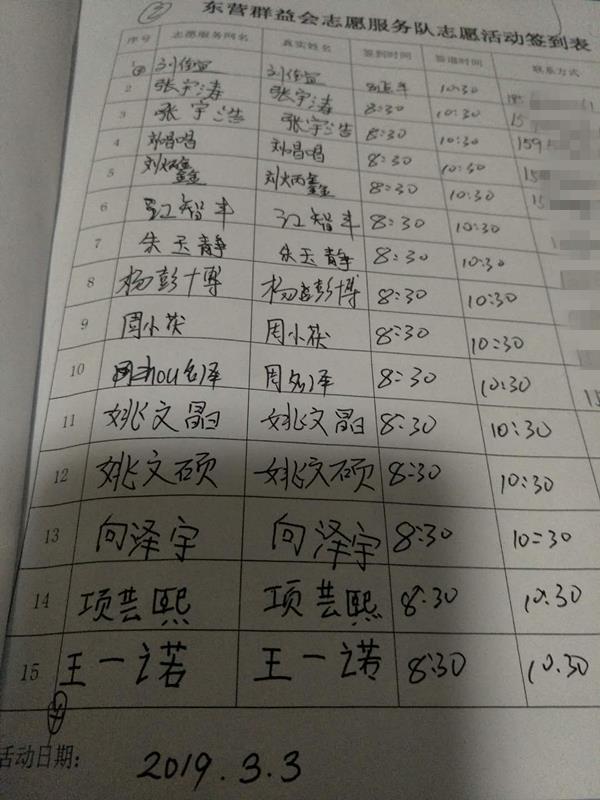 ② 东营群益会志愿服务队志愿活动签到表
序号 志愿服务网名 真实姓名 签到时间 签退时间 联系方式
1 刘俊 刘俊
2 张宇涛 张宇涛 8:30 10:30
3 张宇浩 张宇浩 8:30 10:30 15
4 刘唱唱 刘唱唱 8:30 10:30 159
5 刘炳鑫 刘炳鑫 8:30 10:30 15
6 江智丰 江智丰 8:30 10:30
7 朱玉静 朱玉静 8:30 10:30
8 杨彭博 杨彭博 8:30 10:30
9 周小茯 周小茯 8:30 10:30
10 周名泽 8:30 10:30
11 姚文 姚文 8:30 10:30
12 姚文硕 姚文硕 8:30 10:30
13 向泽宇 向泽宇 8:30 10:30
14 项芸熙 项芸熙 8:30 10:30
15 王一诺 王一诺 8:30 10:30
活动日期: 2019.3.3